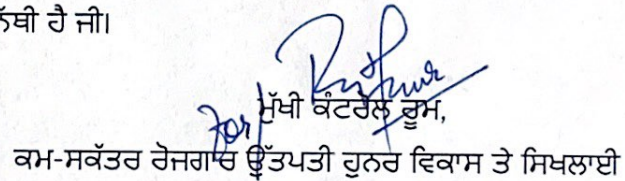 ਨੱਥੀ ਹੈ ਜੀ।
For
ਮੁੱਖੀ ਕੰਟਰੋਲ ਰੂਮ,
ਕਮ-ਸਕੱਤਰ ਰੋਜਗਾਰ ਉੱਤਪਤੀ ਹੁਨਰ ਵਿਕਾਸ ਤੇ ਸਿਖਲਾਈ